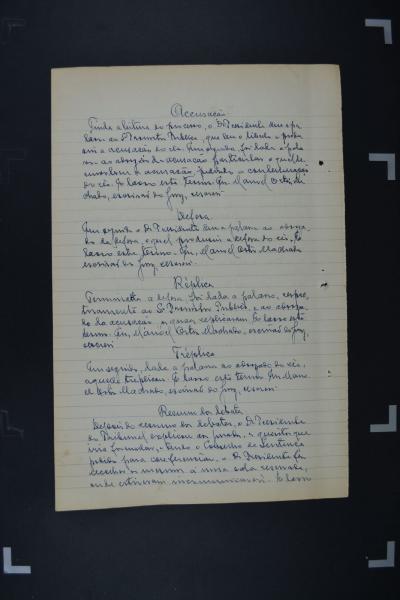 Accusação
Finda a leitura do processo, o Dr Presidente deu a pa-
lavra ao Dr Promotor Publico, que leu o libello e produ-
ziu a accusação do réo. Em seguida foi dada a pala-
vra ao advogado da accusação particular, o qual de-
senvolveu a accusação, pedindo a condemnação
do réo. E lavro este termo. Eu, Manoel Cortes Ma-
chado, escrivão do Jury, escrevi.
Defesa
Em seguida o Dr Presidente deu a palavra ao advoga-
do da defesa, o qual produziu a defesa do réo. E
lavro este termo. Eu, Manoel Cortes Machado
escrivão do Jury, escrevi.
Réplica
Terminada a defesa, foi dada a palavra, respec-
tivamente ao Dr Promotor Publico, e ao advoga-
do da accusação, os quaes replicaram. E lavro este
termo. Eu, Manoel Cortes Machado, escrivão do Jury,
escrevi
Tréplica
Em seguida, dada a palavra ao advogado do réo,
aquelle treplicou. E lavro este termo. Eu Mano-
el Cortes Machado, escrivão do Jury, escrevi.
Resumo dos debates
Depois do resumo dos debates, o Dr Presidente
do Tribunal explicou aos jurados, os quesitos que
iria formular, e tendo o Conselho de Sentença
pedido para conferenciar, o Dr Presidente fez
recolher os mesmos á uma sala reservada,
onde estiveram incommunicaveis. E lavro